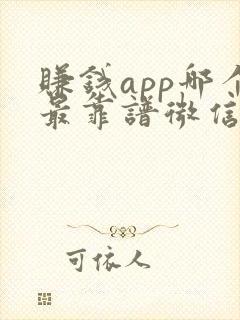 賺錢app哪个
最靠譜微信
可依人